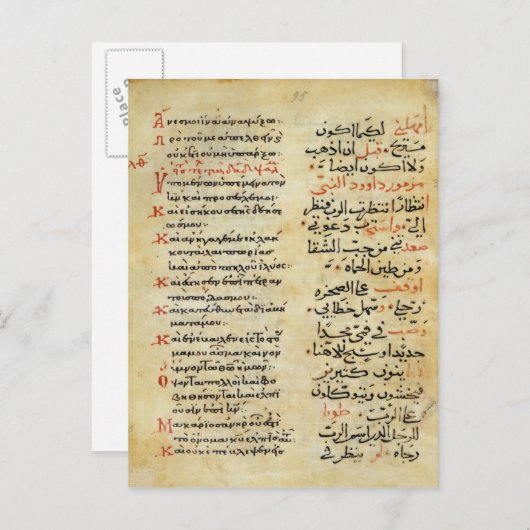 zazzle place
95
Ἄνες μοι ἵνα ἀναψύξω:
Πρὸ τοῦ με ἀπελθεῖν κ
οὐκέτι οὐ μὴ ὑπάρξω:
λθ
Ὑπομένων ὑπέμεινα τὸν
κν καὶ προσέσχε μοι:
Καὶ εἰσήκουσεν τῆς δεήσε
ως μου:
Καὶ ἀνήγαγέ με ἐκ λάκ
κου ταλαιπωρίας
καὶ ἀπὸ πηλοῦ ἰλύος:
Καὶ ἔστησεν ἐπὶ πέτραν
τοὺς πόδας μου:
Καὶ κατεύθυνε τὰ διαβή
ματά μου:
Καὶ ἐνέβαλεν εἰς τὸ στό
μα μου ᾆσμα καινόν
ὕμνον τῷ θῶ ἡμῶν:
Ὄψονται πολλοὶ καὶ φο
βηθήσονται καὶ ἐλπι
οῦσιν ἐπὶ κν:
Μακάριος ἀνὴρ οὗ ἐστι
τὸ ὄνομα κυ ἐλπὶς αὐτ
Καὶ οὐκ ἐπέβλεψεν εἰς
امهلني لكيما اكون
قبل ان اذهب
ولا اكون ايضا
مزمور داوود النبي
انتظارا انتظرت الرب ونظر
الي واستجب دعوتي
اصعدني من جب الشقا
ومن طين الحماه
اوقفت على الصخره
رجلي وسهل خطاي
وصب في فمي مجدا
جديدا وتسبيح لالاهنا
بنون كثير
يخشون ويتوكلون
على الرب طوبا
للرجل الذي اسم الرب
رجاه ولم ينظر في